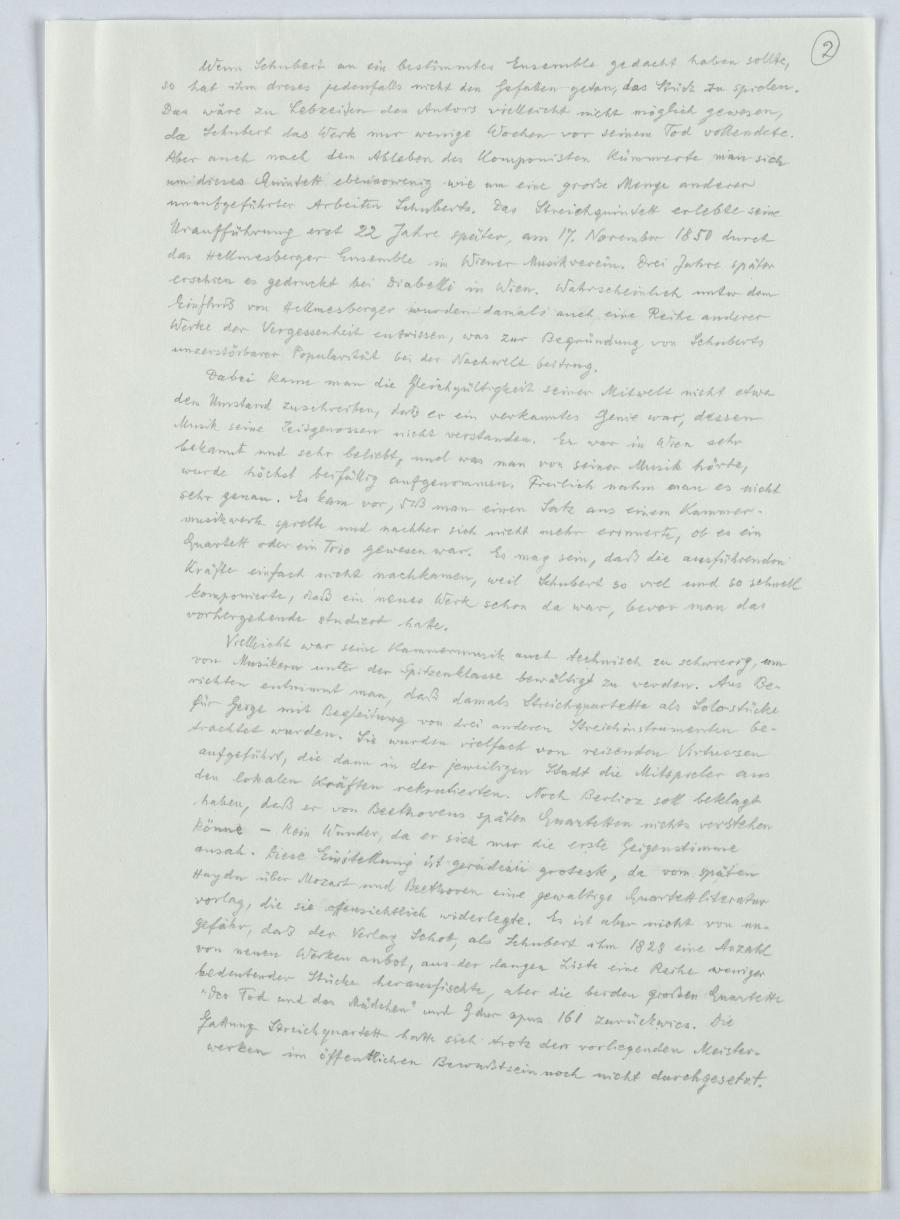 2
Wenn Schubert an ein bestimmtes Ensemble gedacht haben sollte,
so hat ihm dieses jedenfalls nicht den Gefallen getan, das Stück zu spielen.
Das wäre zu Lebzeiten des Autors vielleicht nicht möglich gewesen,
da Schubert das Werk nur wenige Wochen vor seinem Tod vollendete.
Aber auch nach dem Ableben des Komponisten kümmerte man sich
um dieses Quintett ebensowenig wie um eine große Menge anderer
unaufgeführter Arbeiten Schuberts. Das Streichquintett erlebte seine
Uraufführung erst 22 Jahre später, am 17. November 1850 durch
das Hellmesberger Ensemble im Wiener Musikverein. Drei Jahre später
erschien es gedruckt bei Diabelli in Wien. Wahrscheinlich unter dem
Einfluß von Hellmesberger wurden damals auch eine Reihe anderer
Werke der Vergessenheit entrissen, was zur Begründung von Schuberts
unzerstörbarer Popularität bei der Nachwelt beitrug.
Dabei kann man die Gleichgültigkeit seiner Mitwelt nicht etwa
dem Umstand zuschreiben, daß er ein verkanntes Genie war, dessen
Musik seine Zeitgenossen nicht verstanden. Er war in Wien sehr
bekannt und sehr beliebt, und was man von seiner Musik hörte,
wurde höchst beifällig aufgenommen. Freilich nahm man es nicht
sehr genau. Es kam vor, daß man einen Satz aus einem Kammer-
musikwerk spielte und nachher sich nicht mehr erinnerte, ob es ein
Quartett oder ein Trio gewesen war. Es mag sein, daß die ausführenden
Kräfte einfach nicht nachkamen, weil Schubert so viel und so schnell
komponierte, daß ein neues Werk schon da war, bevor man das
vorhergehende studiert hatte.
Vielleicht war seine Kammermusik auch technisch zu schwierig, um
von Musikern unter der Spitzenklasse bewältigt zu werden. Aus Be-
richten entnimmt man, daß damals Streichquartette als Solostücke
für Geige mit Begleitung von drei anderen Streichinstrumenten be-
trachtet wurden. Sie wurden vielfach von reisenden Virtuosen
aufgeführt, die dann in der jeweiligen Stadt die Mitspieler aus
den lokalen Kräften rekrutierten. Noch Berlioz soll beklagt
haben, daß er von Beethovens späten Quartetten nichts verstehen
könne – kein Wunder, da er sich nur die erste Geigenstimme
ansah. Diese Einstellung ist geradezu grotesk, da vom späten
Haydn über Mozart und Beethoven eine gewaltige Quartettliteratur
vorlag, die sie offensichtlich widerlegte. Es ist aber nicht von un-
gefähr, daß der Verlag Schot, als Schubert ihm 1828 eine Anzahl
von neuen Werken anbot, aus der langen Liste eine Reihe weniger
bedeutender Stücke herausfischte, aber die beiden großen Quartette
"Der Tod und das Mädchen" und G dur opus 161 zurückwies. Die
Gattung Streichquartett hatte sich trotz der vorliegenden Meister-
werken im öffentlichen Bewußtsein noch nicht durchgesetzt.